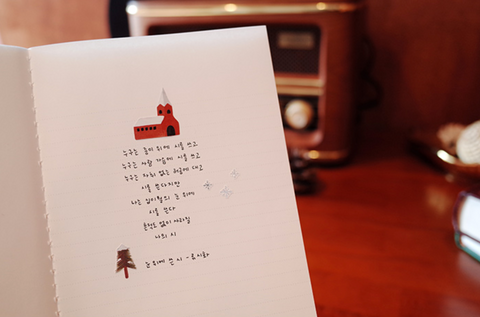 누구는 종이 위에 시를 쓰고
누구는 사람 가슴에 시를 쓰고
누구는 자취 없는 허공에 대고
시를 쓴다지만
나는 십이월의 눈 위에
시를 쓴다
흔적도 없이 사라질
나의 시
눈 위에 쓴 시 - 류시화